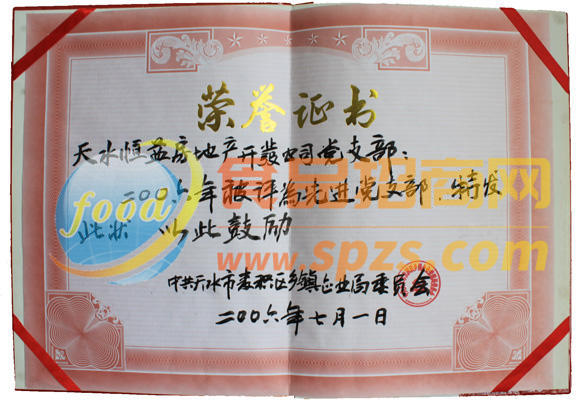 荣誉证书
天水恒益房地产开发公司党支部:
二00六年被评為先进党支部,特发
此状 以此鼓励
中共天水市麦积区乡镇企业局委员会
二00六年七月一日
food
食品招商网
www.spzs.com